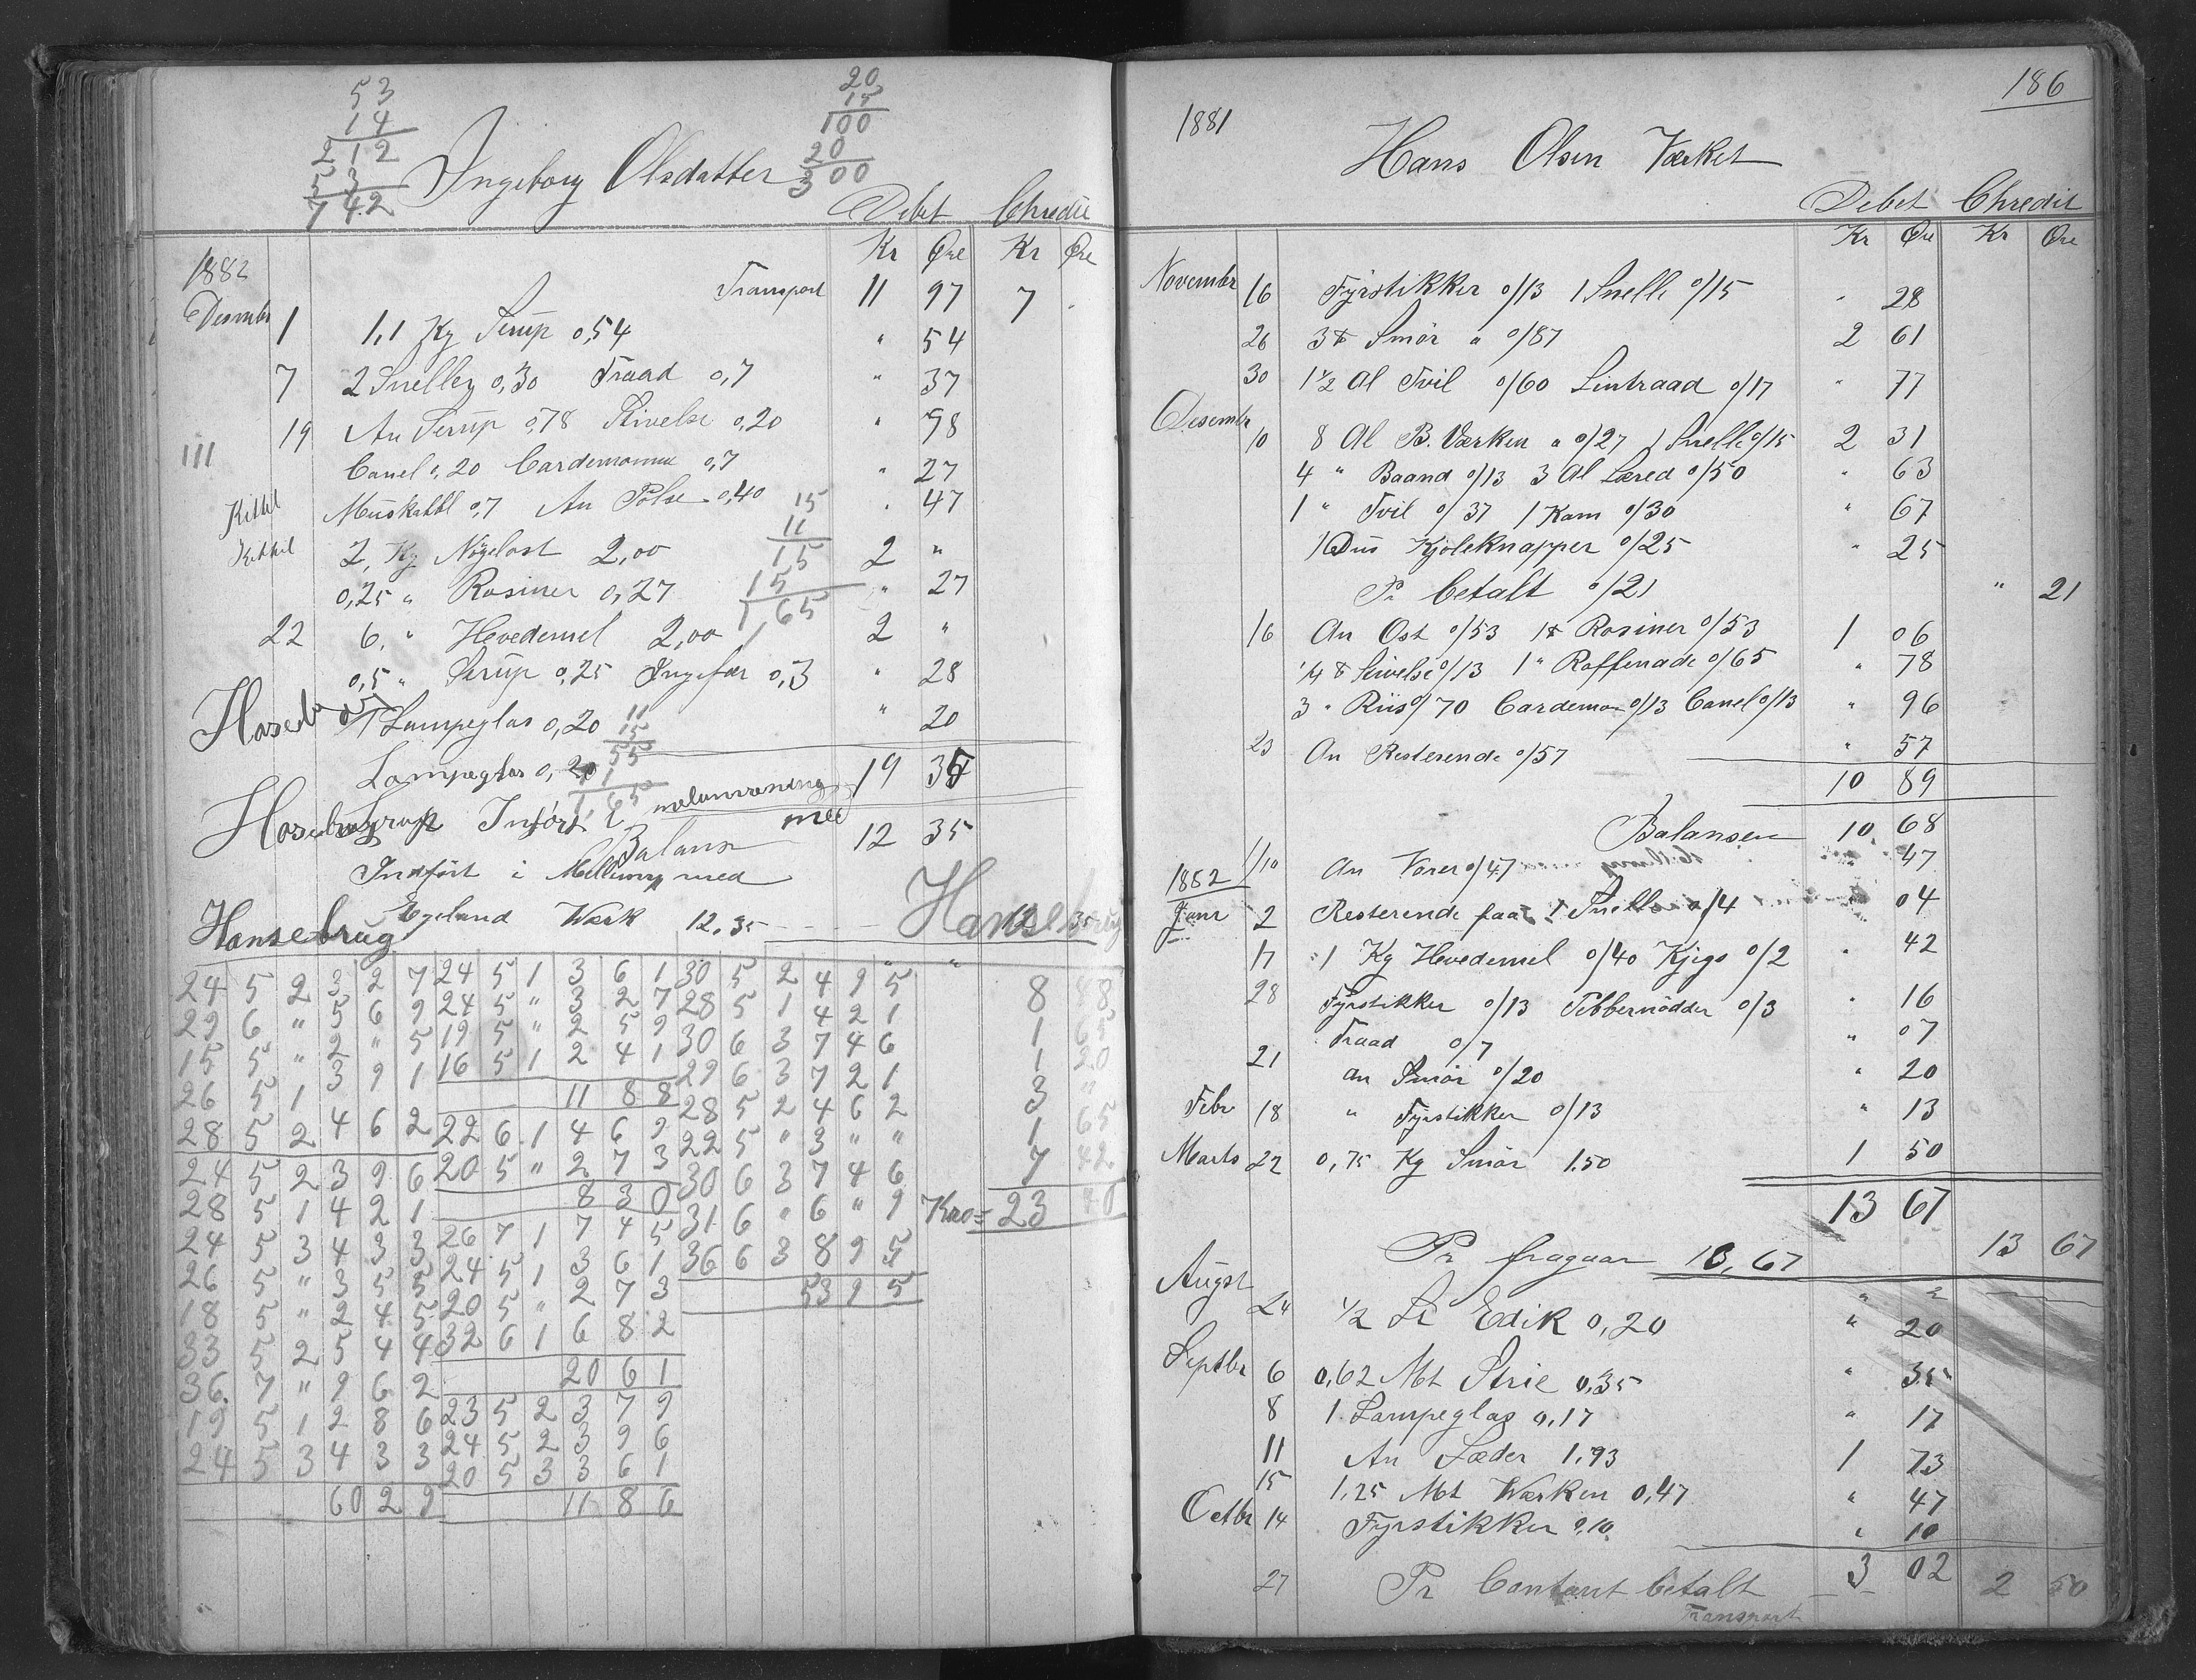 53
14
212
53
742
20
15
100
20
300
Ingeborg Olsdatter
Debet Chredit
Kr Øre Kr Øre
1882
Transport 11 97 7 -
Desembr 1 1,1 Kg Sirup 0,54 " 54
7 2 Sneller 0,30 Traad 0,7 " 37
19 An Sirup 0,78 Stivelse 0,20 " 98
III Canel 0,20 Cardemomme 0,7 " 27
Kittil Muskatbl 0,7 An Pølse 0,40 " 47
Kittil 2, Kg Nøgelost 2,00 2 "
0,25 " Rosiner 0,27 " 27
15
11
15
15
165
22 6, " Hvedemel 2,00 2 "
0,5 " Sirup 0,25 Ingefær 0,3 " 28
1 Lampeglas 0,20 " 20
11
15
55
11
165
Lampeglas 0,20 19 35
Inført mellemregning med
Balans 12 35
Indført i Mellemrg med
Egeland Værk 12.35 12 35
Hansebrug
Hansebrug
24 5 2 3 2 7 24 5 1 3 6 1 30 5 2 4 9 5 8 88
29 6 " 5 6 9 24 5 " 3 2 7 28 5 1 4 2 1 1 65
15 5 " 2 " 5 19 5 " 2 5 9 30 6 3 7 4 6 1 20
26 5 1 3 9 1 16 5 1 2 4 1 29 6 3 7 2 1 3 "
11 8 8
28 5 2 4 6 2 22 6 1 4 6 9 28 5 2 4 6 2 1 65
24 5 2 3 9 6 20 5 " 2 7 3 22 5 " 3 " " 7 42
8 3 0
28 5 1 4 2 1 26 7 1 7 4 5 30 6 3 7 4 6 Kro = 23 40
24 5 3 4 3 3 24 5 1 3 6 1 31 6 " 6 " 9
26 5 " 3 5 5 20 5 " 2 7 3 36 6 3 8 9 5
18 5 " 2 4 5 32 6 1 6 8 2 53 9 5
33 5 2 5 4 4 20 6 1
36 7 " 9 6 2 23 5 2 3 7 9
19 5 1 2 8 6 24 5 2 3 9 6
24 5 3 4 3 3 20 5 3 3 6 1
60 2 9 11 8 6
186
1881
Hans Olsen Værket
Debet Chredit
Kr Øre Kr Øre
Novembr 16 Fyrstikker 0/13 1 Snelle 0/15 " 28
26 3 ℔ Smør " 0/87 2 61
30 1 1/2 Al Tvil 0/60 Lintraad 0/17 " 77
Desembr 10 8 Al B. Værken " 0/27 1 Snelle 0/15 2 31
4 " Baand 0/13 3 Al Læred 0/50 " 63
1 " Tvil 0/37 1 Kam 0/30 " 67
1 Dus Kjoleknapper 0/25 " 25
Pr betalt 0/21 " 21
16 An Ost 0/53 1 ℔ Rosiner 0/53 1 06
1/4 ℔ Stivelse 0/13 1 " Raffenade 0/65 " 78
3 " Riis 0/70 Cardemom 0/13 Canel 0/13 " 96
23 An Resterende 0/57 " 57
10 89
Balansen 10 68
1/10 An Varer 0/47 " 47
1882
Janr 2 Resterende paa 1 Snelle 0/4 " 04
17 1 Kg Hvedemel 0/40 Kjegs 0/2 " 42
28 Fyrstikker 0/13 Pebbernødder 0/3 " 16
Traad 0/7 " 07
21 an Smør 0/20 " 20
Febr 18 " Fyrstikker 0/13 " 13
Marts 22 0,75 Kg Smør 1.50 1 50
13 67
Pr fragaar 13,67 13 67
Augst " "
24 1/2 Lt Edik 0,20 " 20
Septbr 6 0,62 Mt Strie 0,35 " 35
8 1 Lampeglas 0,17 " 17
11 An Læder 1.73 1 73
15 1,25 Mt Værken 0,47 " 47
Octbr 14 Fyrstikker 0.10 " 10
3 02
27 Pr Contant betalt 2 50
Transport